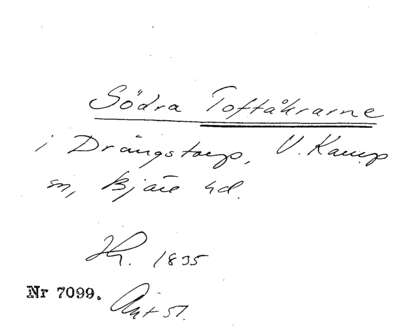 Södra Toftåkrarne
i Drängstorp, V. Karup
sn, Bjäre hd.
Hr. 1835
Nr 7099. Akt 51.